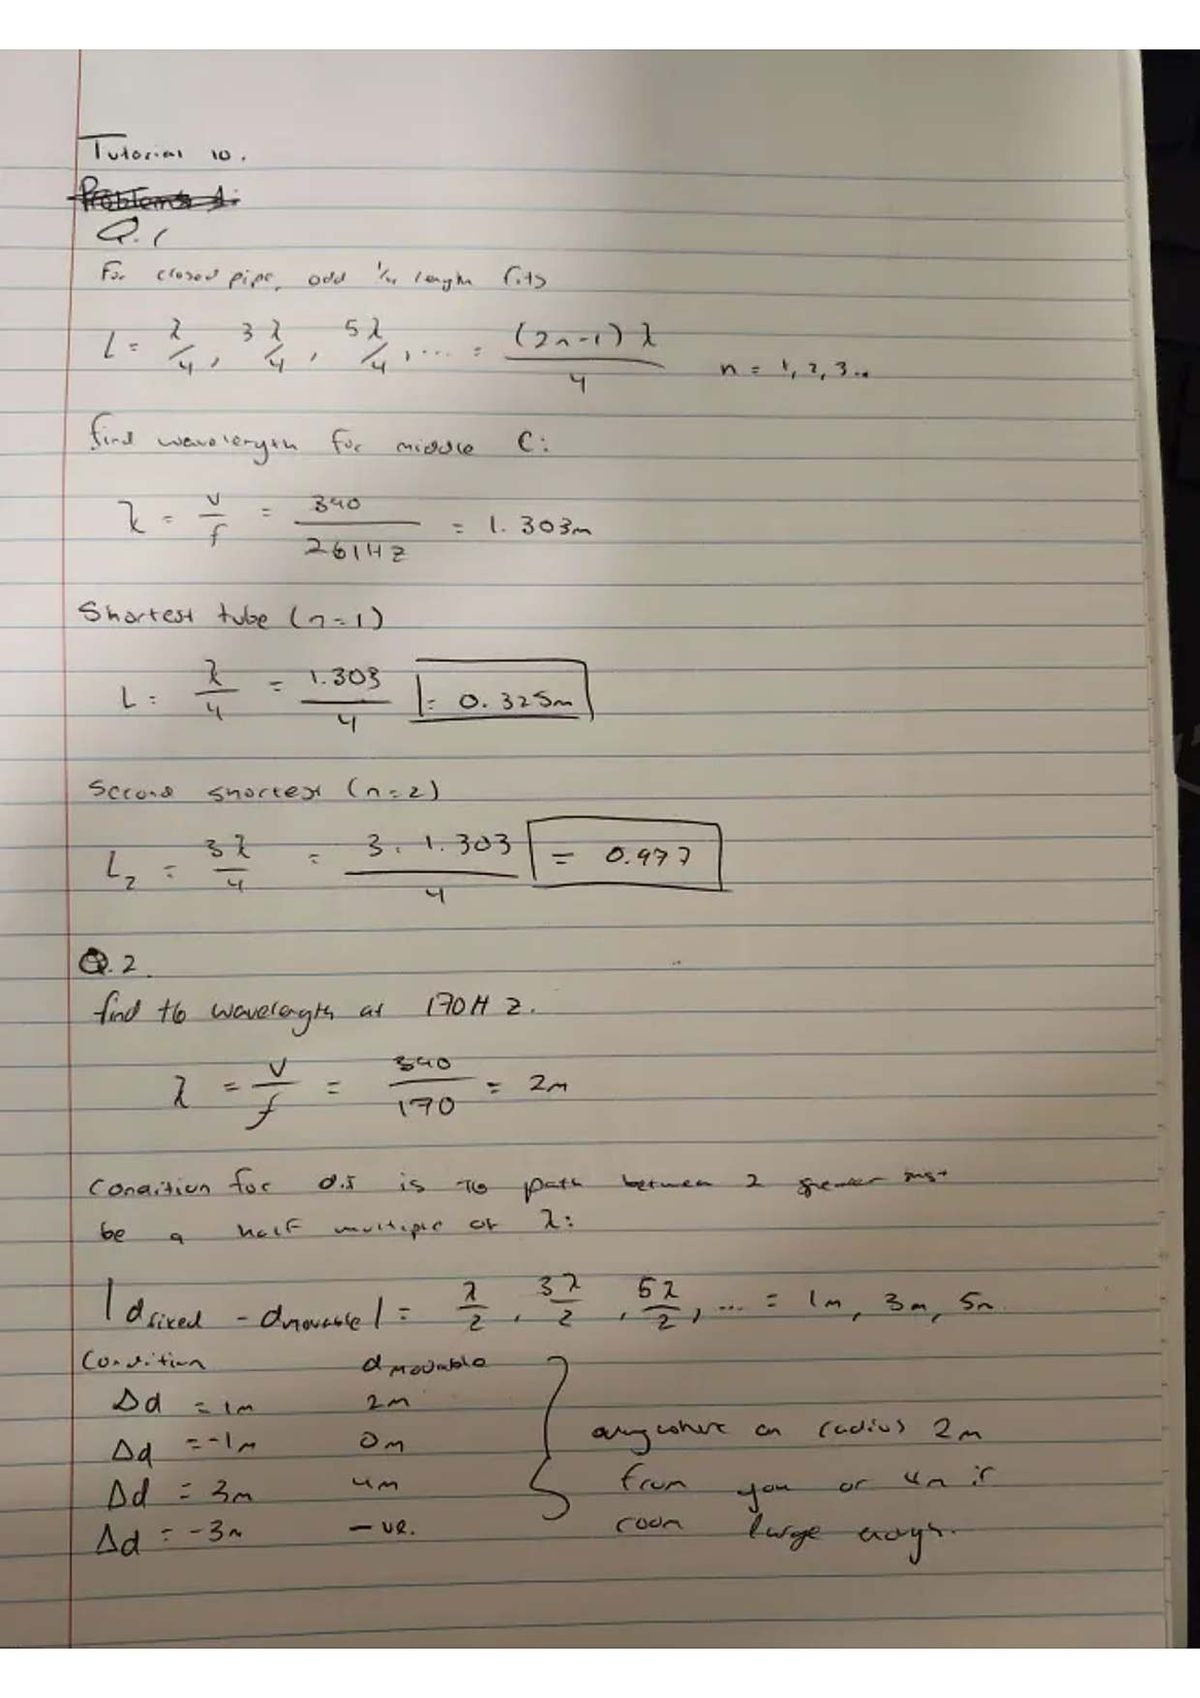 Tutorial 10.
Problems 1:
Q.1
For closed pipe, odd 1/4 length fits
L = λ/4, 3λ/4, 5λ/4, .... = (2n-1)λ/4 n = 1, 2, 3...
find wavelength for middle C:
λ = v/f = 340/261Hz = 1.303m
Shortest tube (n=1)
L = λ/4 = 1.303/4 = 0.325m
Second shortest (n=2)
L2 = 3λ/4 = 3. 1.303/4 = 0.977
Q.2.
find the wavelength at 170Hz.
λ = v/f = 340/170 = 2m
Condition for d.i is the path between 2 must
be a half multiple of λ:
|dfixed - dmovable| = λ/2, 3λ/2, 5λ/2, ... = 1m, 3m, 5m
Condition dmovable
Δd = 1m 2m
Δd = -1m 0m
Δd = 3m 4m
Δd = -3m -ve.
anywhere on radius 2m
from you or 4m if
room large enough.